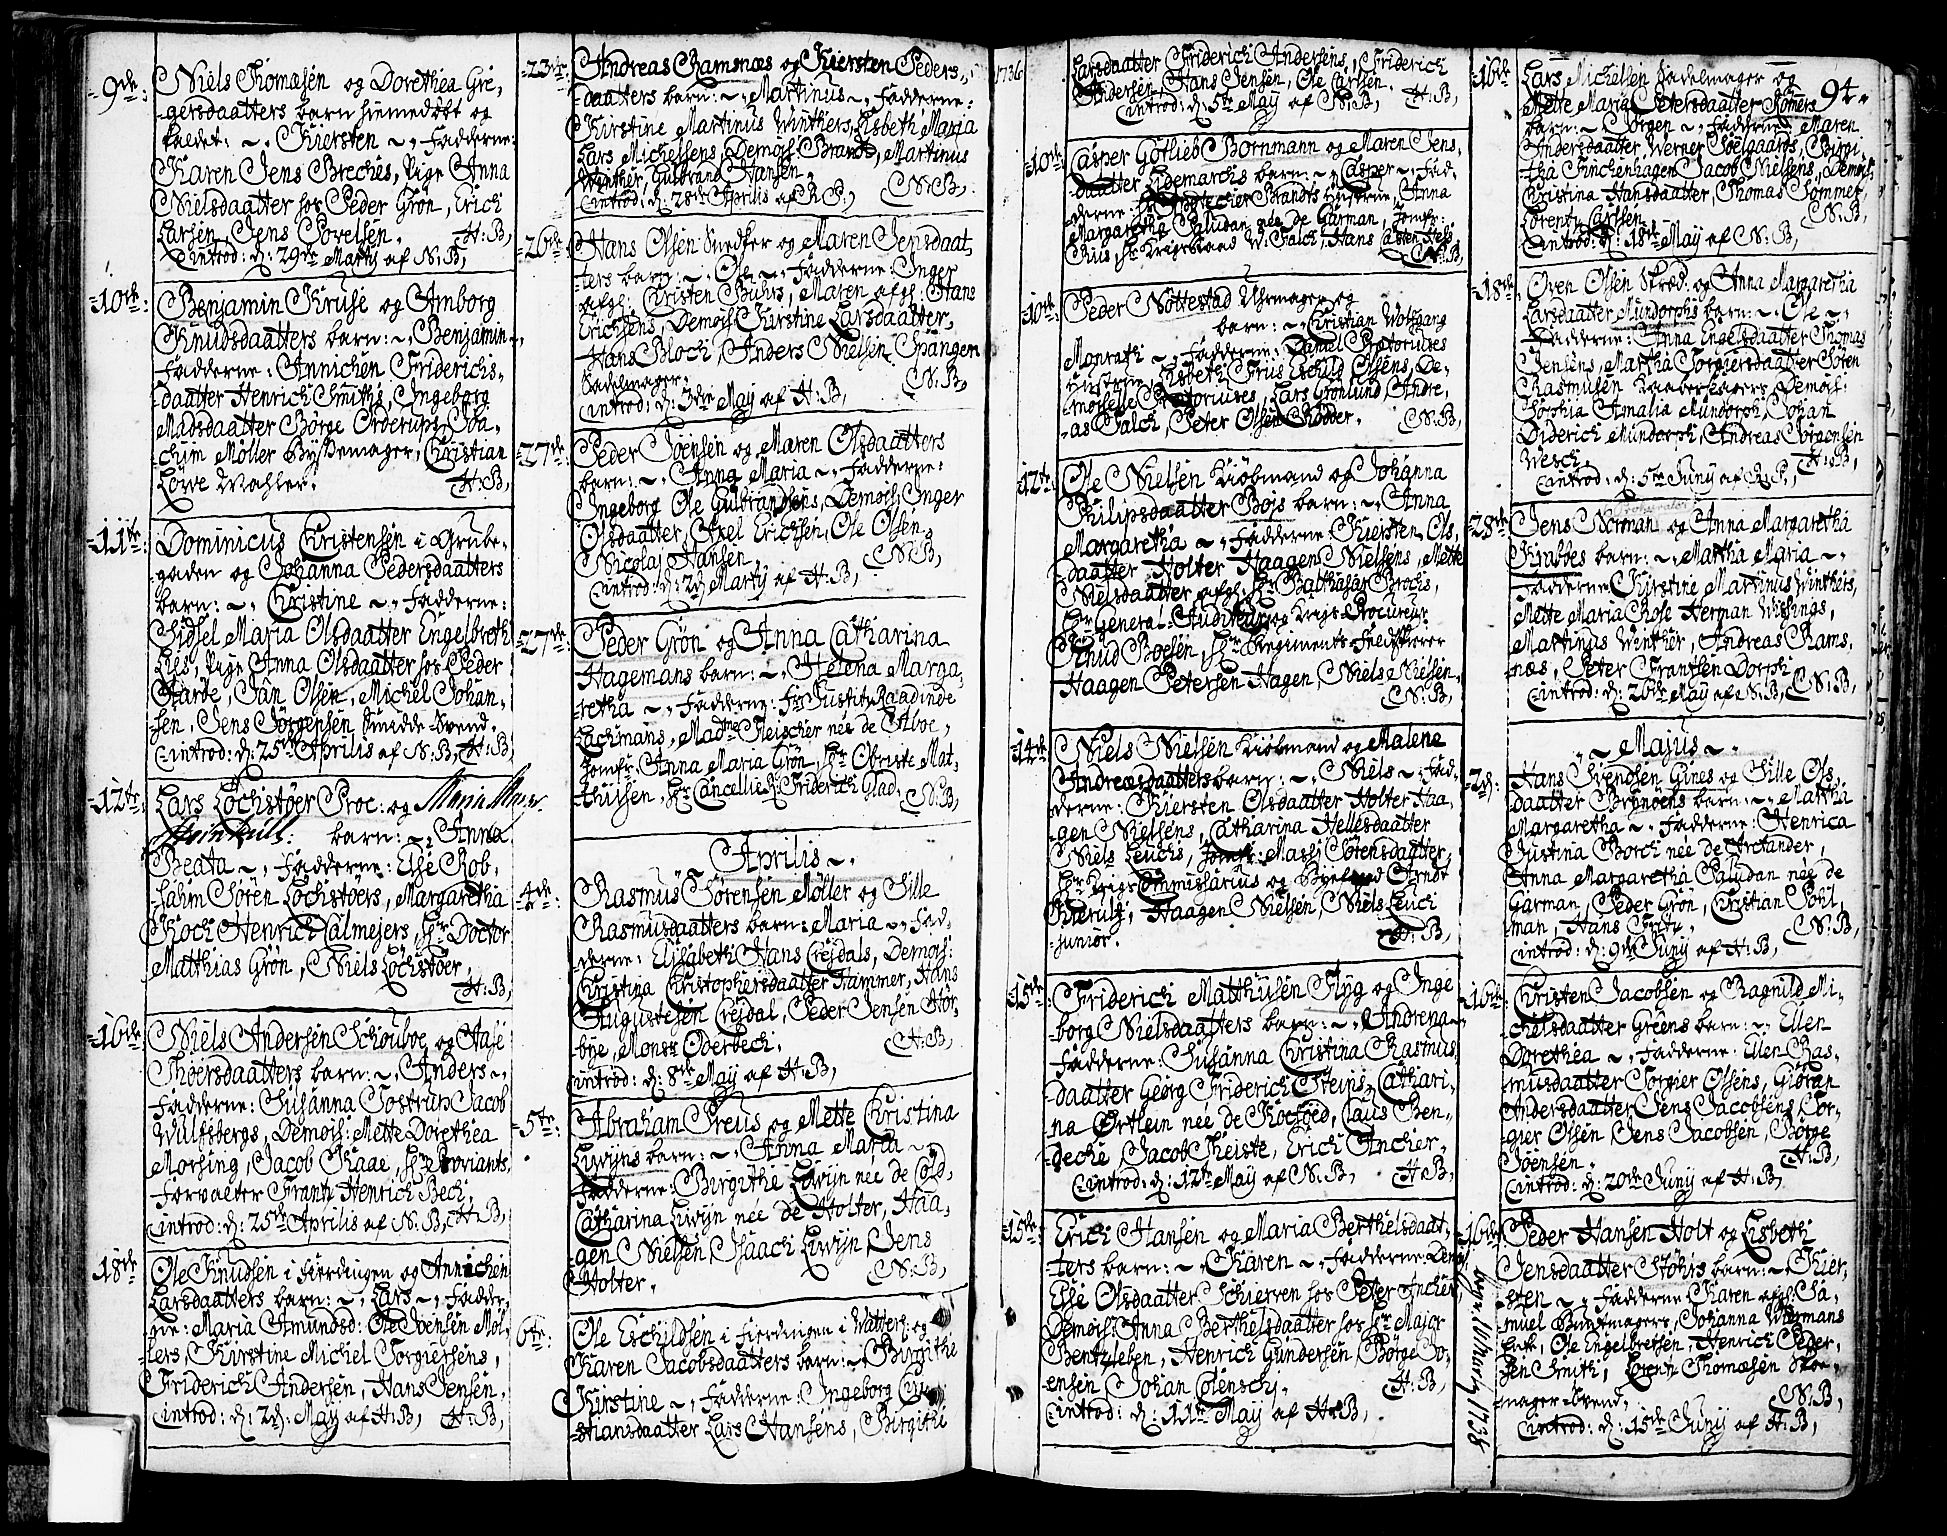 -9de:
Niels Thomæsen og Dorethea Gre,
-gersdaatters barn hiemedøbt og
kaldet: ~, Kiersten ~, Fadderne:
Karen Jens Breches, Pige Anna
Nielsdaatter hos Peder Grøn, Erich
Larsen, Jens Povelsen. H:B,
introd: d: 29de Martij af N:B,
-10de:
Benjamin Kruse og Amborg
Knudsdaatters barn: ~, Benjamin ~,
Fadderne: Annichen Friderichs-
-daatter Henrich Smiths, Ingeborg
Madsdaatter Børge Orderups, Joa-
-chim Møller Bÿssemager, Christian
Løwe Wahler. H:B,
-11te:
Dominicus Christensen i Grube-
-gaden og Johanna Pedersdaatters
barn: ~, Christine ~, Fadderne:
Sidsel Maria Olsdaatter Engelbreth
Lies, Pige Anna Olsdaatter hos Peder
Garde, Jan Olsen, Michel Johan-
-sen, Jens Jørgensen Smedde-Svend.
introd: d: 25de Aprilis af N:B, H:B,
-12te:
Lars Lochstøer Proc: og Maria
barn: ~, Anna
Beata ~, Fadderne: Else Rob,
-sahm Søren Lochstøers, Margaretha
Koch Henrich Calmejers, Hr Doctor
Matthias Grøn, Niels Lochstøer.
H:B,
-16de:
Niels Andersen Schouboe og Aase
Thoersdaatters barn: ~, Anders ~,
Fadderne: Susanna Tostrup Jacob
Wulfsbergs, Demois: Mette Dorethea
Morsing, Jacob Kaae, Hr Proviants
Forvalter Frantz Henrich Bech.
introd: d: 25de Aprilis af N:B, H:B,
18de
Ole Knudsen i Fierdingen og Annichen
Larsdaatters barn: ~, Lars ~, Fadder,
-ne: Maria Amundsd: Ole Joensen Møl-
-lers, Kirstine Michel Torgiersens,
Friderich Andersen, Hans Jensen.
introd: d: 2d: Maÿ af H:B, H:B,
-23de:
Andreas Ramsnæs og Kiersten Peders,
-daatters barn: ~, Martinus ~, Fadderne:
Kirstine Martinus Winthers, Lisbeth Maria
Lars Michelsens, Demois: Brandt, Martinus
Winther, Gulbrand Hansen. N:B,
introd: d: 28de Aprilis af R:P,
-26de:
Hans Olsen Snedker og Maren Jensdaat-
-ters barn: ~, Ole ~, Fadderne: Inger
afgl: Christen Buhrs, Maren afgl: Hans
Erichsens, Demois: Kirstine Larsdaatter,
Hans Bloch, Anders Nielsen Spangen
Sadelmager. N:B,
introd: d: 3die Maÿ af H:B,
-27de:
Peder Joensen og Maren Olsdaatters
barn: ~, Anna Maria ~, Fadderne:
Ingeborg Ole Gulbrandsens, Demois: Inger
Olsdaatter, Axel Erichsen, Ole Olsen,
Nicolaj Hansen. N:B,
introd: d: 2d Martij af H:B,
-27de:
Peder Grøn og Anna Catharina
Hagemans barn: ~, Helena Marga-
-retha ~, Fadderne: Fr Justitz Raadinde
Lachmans, Madme Fleischer neé de Alboe,
Jomfr: Anna Maria Grøn, Hr Obriste Mat-
-thiesen, Hr Cancellie R: Friderich Glad.
N:B,
~ Aprilis ~.
-4de:
Rasmus Sørensen Møller og Sille
Rasmusdaatters barn: Maria ~, Fad-
-derne: Elisabeth Hans Crejdals, Demois:
Christina Christophersdaatter Hammer, Hans
Augustesen Crejdal, Peder Jensen Kør-
-bye, Mons Oderbech. H:B,
introd: d: 8de Maÿ af H:B,
-5te:
Abraham Preus og Mette Christina
Liwijns barn: ~, Anna Maria ~,
Fadderne: Birgithe Liwijn neé de Old,
Catharina Liwijn neé de Holter, Haa-
-gen Nielsen, Isaach Liwijn, Jens
Holter. N:B,
6te:
Ole Eschildsen i Fierdingen i Watterl: og
Karen Jacobsdaatters barn: ~, Birgithe
Kirstine ~, Fadderne: Ingeborg
-stiansdaatter Lars Hansens, Birgithe
1736
Larsdaatter Friderich Andersens, Friderich
Andersen, Hans Jensen, Ole Larsen.
introd: d: 5te Maÿ af N:B, H:B,
-10de:
Casper Gotlieb Bornmann og Maren Jens,
-daatter Lidemarchs barn: ~, Casper ~, Fad-
-derne: Hr Apothecher Brandts Hustrue, Anna
Margaretha Paludan neé de Garman, Jomfr:
Rus, Hr Krigsraad W: Falch, Hans Casten Hess
N:B,
-10de:
Peder Nottestad Uhrmager og
barn: ~, Christian Wolfgang
Monrath ~, Fadderne: Daniel Pratoriuses
Hustrue, Lisbeth Frus Eschild Olsens, De-
-moiselle Pratoriuses, Lars Grønlund, Andre-
-as Falch, Peter Olsen Rodder. N:B,
-12te:
Ole Nielsen Kiøbmand og Johanna
Philipsdaatter Bojs barn: ~, Anna
Margaretha ~, Fadderne: Kiersten Ols,
-daatter Holter Haagen Nielsens, Mette
Nielsdaatter afgl: Hr Balthasar Brochs,
Hr General-Auditeur og Regs-Procureur
Knud Boesen, Hr Regiments Feldskierer
Haagen Petersen Hagen, Niels Nielsen.
N:B,
-14de:
Niels Nielsen Kiøbmand og Malene
Andreasdaatters barn: ~, Niels ~, Fad-
derne: Kiersten Olsdaatter Holter Haa-
-gen Nielsens, Catharina Hellesdaatter
Niels Leuchs, Jomfr: Massi Sørensdaatter,
Hr Krigs Commissarius og Byefoged Arndt
Kierulf, Haagen Nielsen, Niels Leuch
junior. H:B,
-15de:
Friderich Matthiesen Flyg og Inge
borg Nielsdaatters barn: ~, Andrena ~
Fadderne: Susanna Christina Rasmus
daatter Georg Friderich Steins, Cathari-
na Ørtlein neé de Rochsoed, Claus Ben-
deche, Jacob Theiste, Erich Ancher.
introd: d: 12te Maÿ af N:B, H:B,
-15de:
Erich Hansen og Maria Berthelsdaat-
ters barn: ~, Karen ~, Fadderne: Demois:
Else Olsdaatter Schierven hos Peter Ancher,
Demois: Anna Berthelsdaatter hos Hr Major
Bentzleben, Henrich Gundersen, Børge Jo-
-ensen, Johan Colensch. H:B,
introd: d: 11te Maÿ af H:B,
94.
-16de
Lars Michelsen Sadelmager og
Mette Maria Petersdaatter Sommers
barn: ~, Jørgen ~, Fadderne: Maren
Andersdaatter Werner Soelgaards, Birgi-
tha Finchenhagen Jacob Nielsens, Demois:
Christina Hansdaatter, Thomas Sommer,
Lorentz Carlsen. N:B,
introd: d: 18de Maÿ af N:B,
-18de:
Oven Olsen Skræd: og Anna Margaretha
Larsdaatter Mundorphs barn: ~, Ole ~,
Fadderne: Anna Engelsdaatter Thomas
Jensens, Martha Torgiersdaatter Søren
Rasmusen , Demois:
Sophia Amalia Mundorph, Johan
Diderich Mundorph, Andreas Jørgensen
Wesch. H:B,
introd: d: 5te Junij af R:P,
-28de:
Jens Norman og Anna Margaretha
Krabbes barn: ~, Martha Maria ~,
Fadderne: Kirstine Martinus Winthers,
Mette Maria Rose Herman Wissings,
Martinus Winther, Andreas Rams,
næs, Peter Frantsen Dorph.
introd: d: 26de Maÿ af N:B, N:B,
~ Majus ~.
-2d:
Hans Svendsen Gines og Sille Ols,
daatter Brynoens barn: ~, Martha
Margaretha ~, Fadderne: Henrica
Justina Borch neé de Arctander,
Anna Margaretha Paludan neé de
Garman, Peder Grøn, Christian Pohl,
man, Hans Fritz. N:B,
introd: d: 9de Junij af H:B,
-16de:
Christen Jacobsen og Ragnild Mi-
chelsdaatter Greens barn: ~, Ellen
Dorethea ~, Fadderne: Ellen Ras-
musdaatter Torgier Olsens, Giøran
Andersdaatter Jens Jacobsens, Tor-
gier Olsen, Jens Jacobsen, Børge
Joensen. H:B,
introd: d: 20de Junij af H:B,
16de
Peder Hansen Holt og Lisbeth
Jensdaatter Støhrs barn: ~, Kier,
-sten ~, Fadderne: Karen afgl: Sa-
muel Buntmagers, Johanna Wiermans
Enke, Ole Engelbretsen, Henrich Peder,
-sen Smith, Lorentz Thomæsen Skoe-
-mager-Svend. N:B,
introd: d: 15de Junij af H:B,
1738